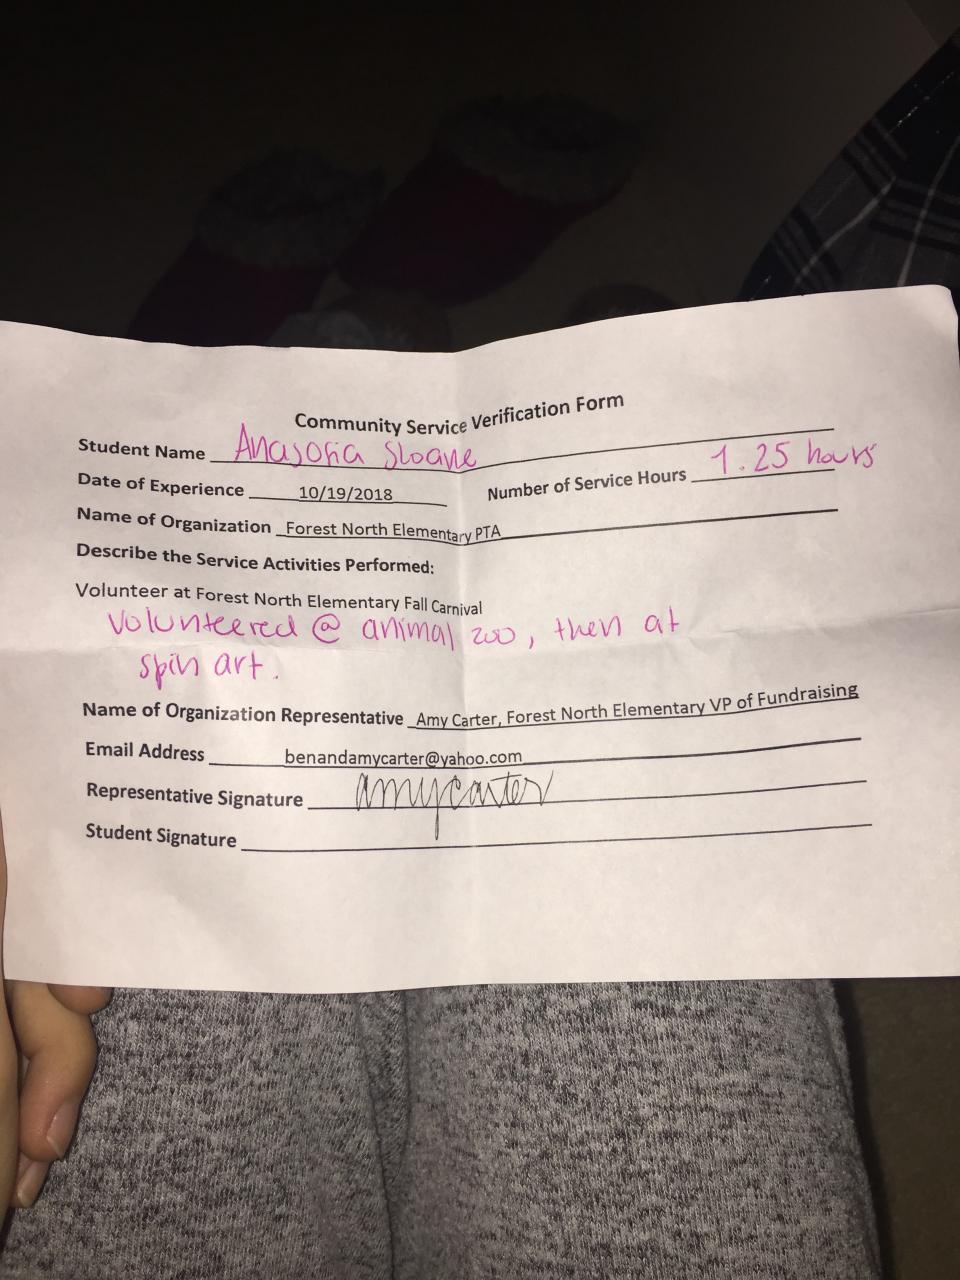 Community Service Verification Form
Student Name Anasofia Sloane
Date of Experience 10/19/2018 Number of Service Hours 1.25 hours
Name of Organization Forest North Elementary PTA
Describe the Service Activities Performed:
Volunteer at Forest North Elementary Fall Carnival
Volunteered @ animal zoo, then at
spin art.
Name of Organization Representative Amy Carter, Forest North Elementary VP of Fundraising
Email Address benandamycarter@yahoo.com
Representative Signature amycarter
Student Signature